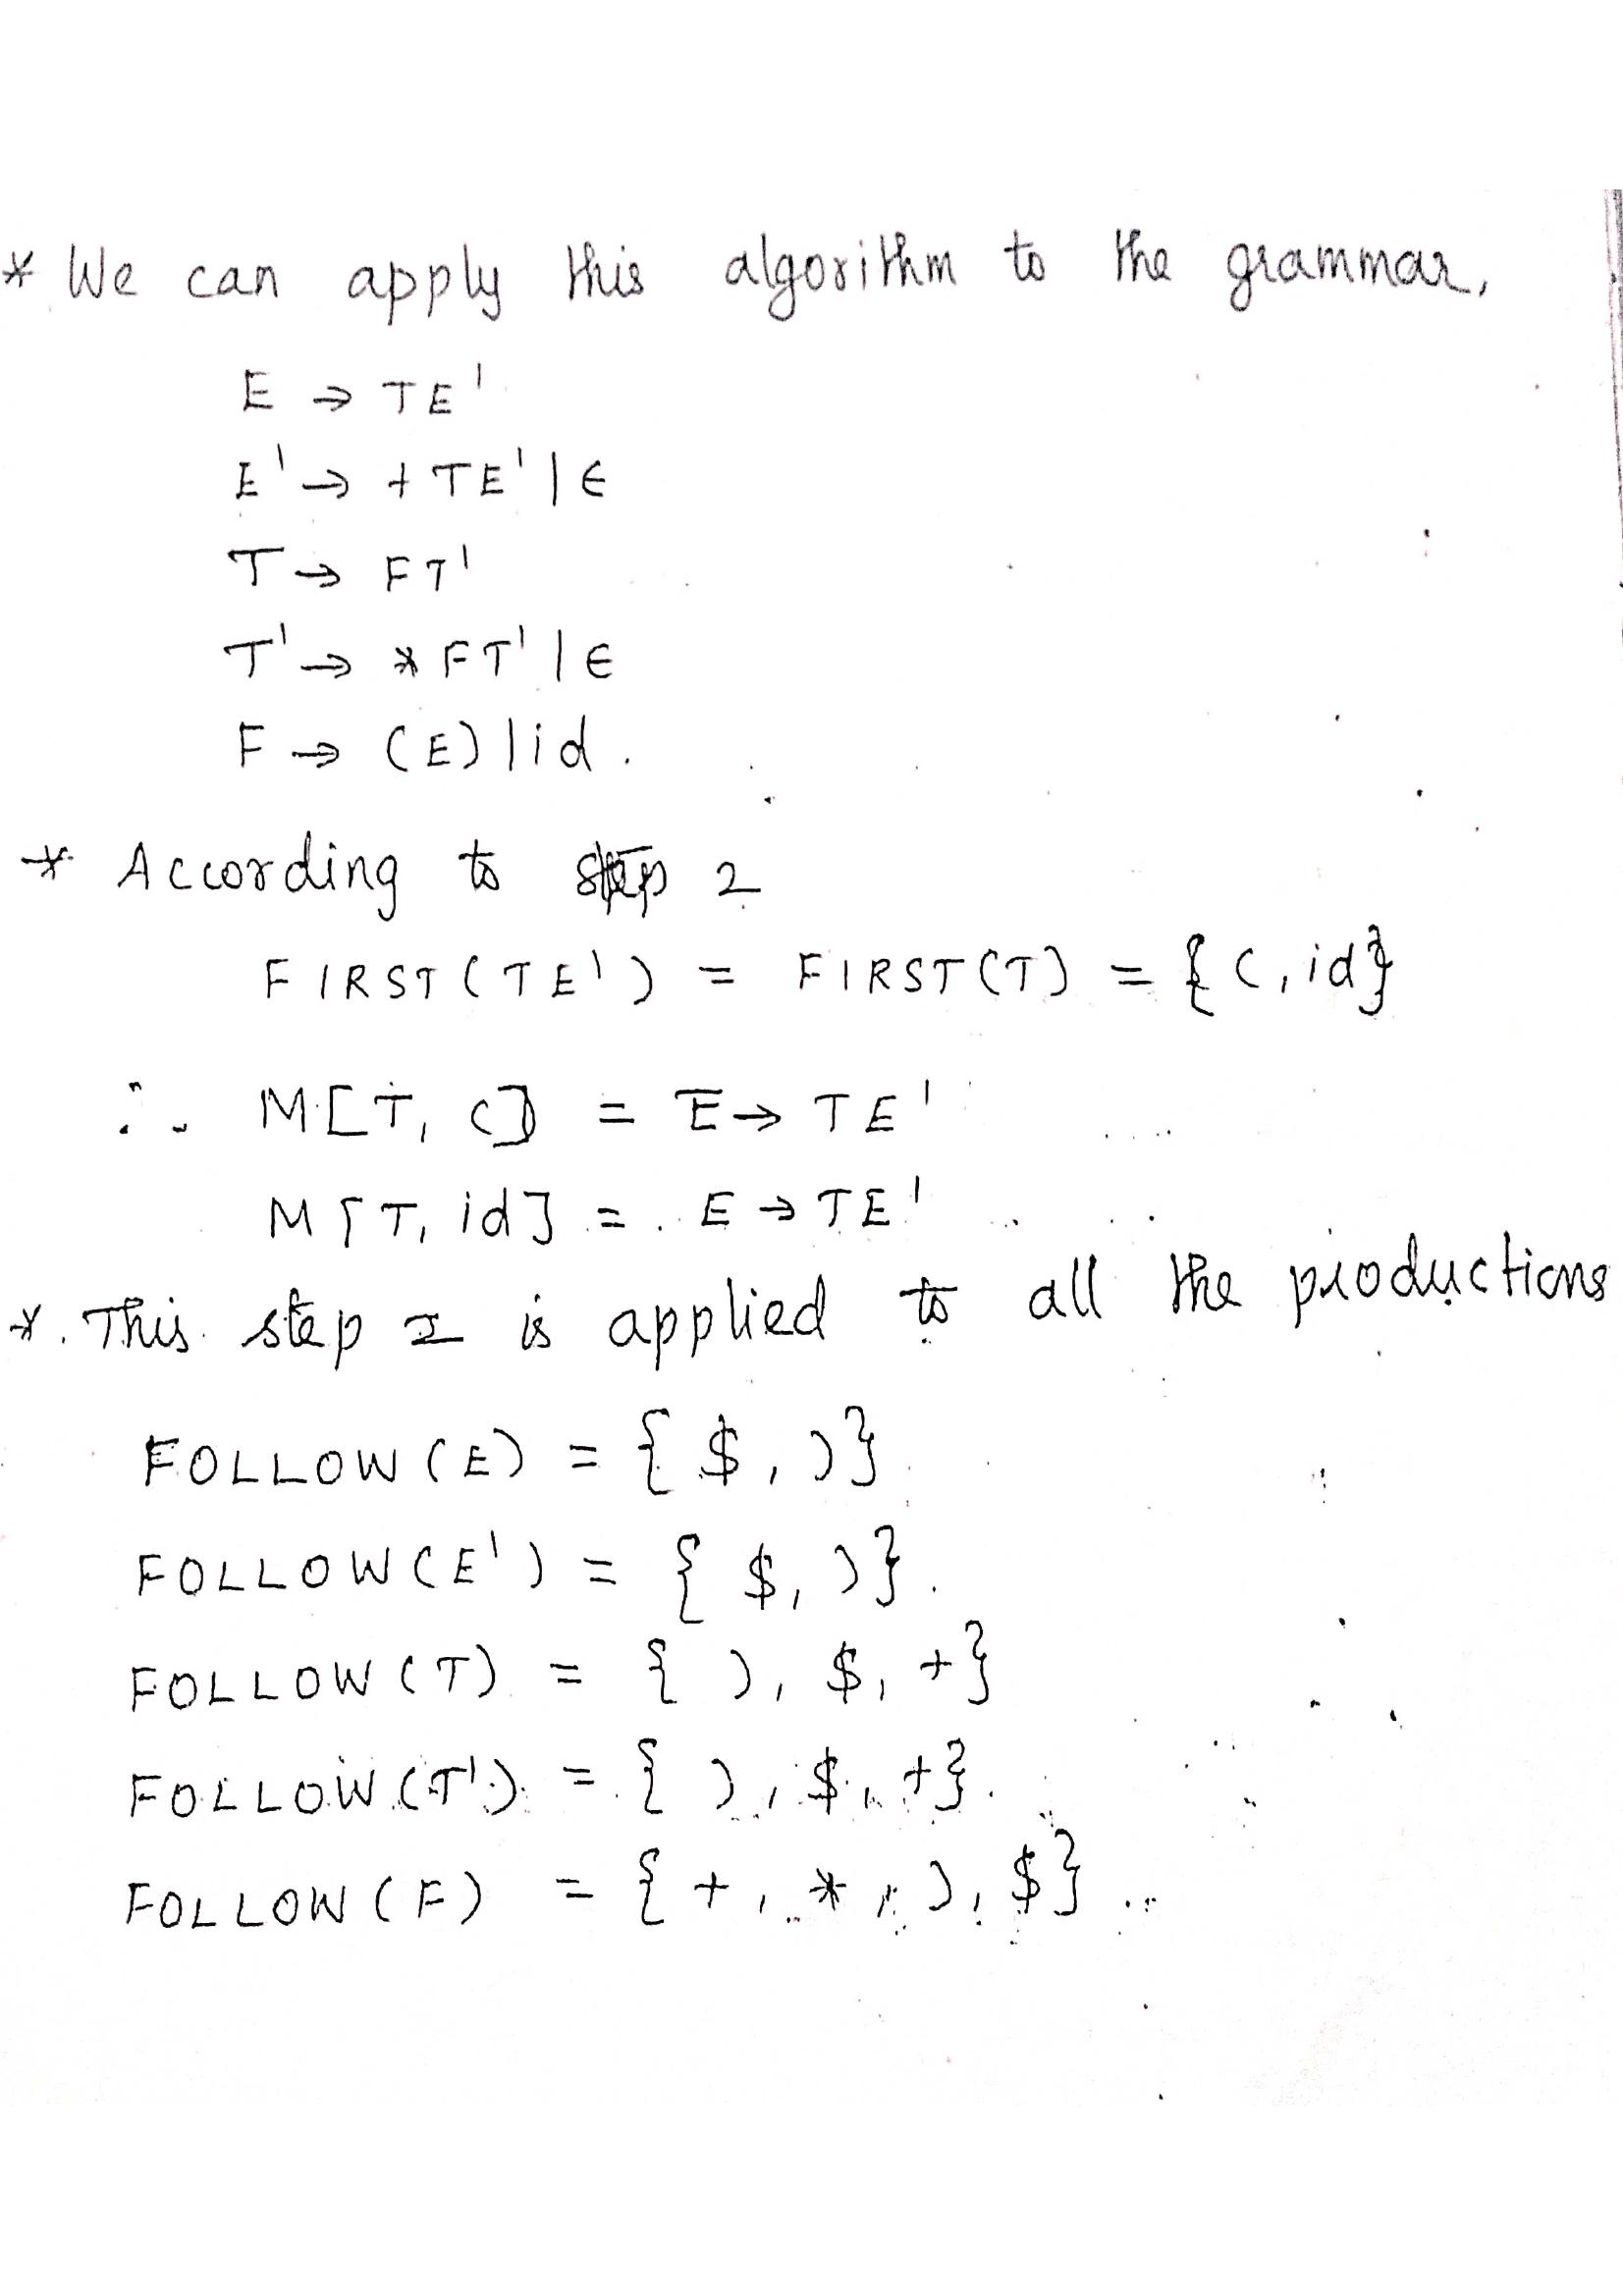 * We can apply this algorithm to the grammar,
E → TE'
E' → + TE' | ϵ
T → FT'
T' → * FT' | ϵ
F → (E) | id .
* According to step 2
FIRST (TE') = FIRST (T) = { (, id}
∴ M[T, (] = E → TE'
M[T, id] = E → TE'
* This step 2 is applied to all the productions
FOLLOW (E) = { $, )}
FOLLOW (E') = { $, )}.
FOLLOW (T) = { ), $, +}
FOLLOW (T') = { ), $, +}.
FOLLOW (F) = { +, *, ), $}